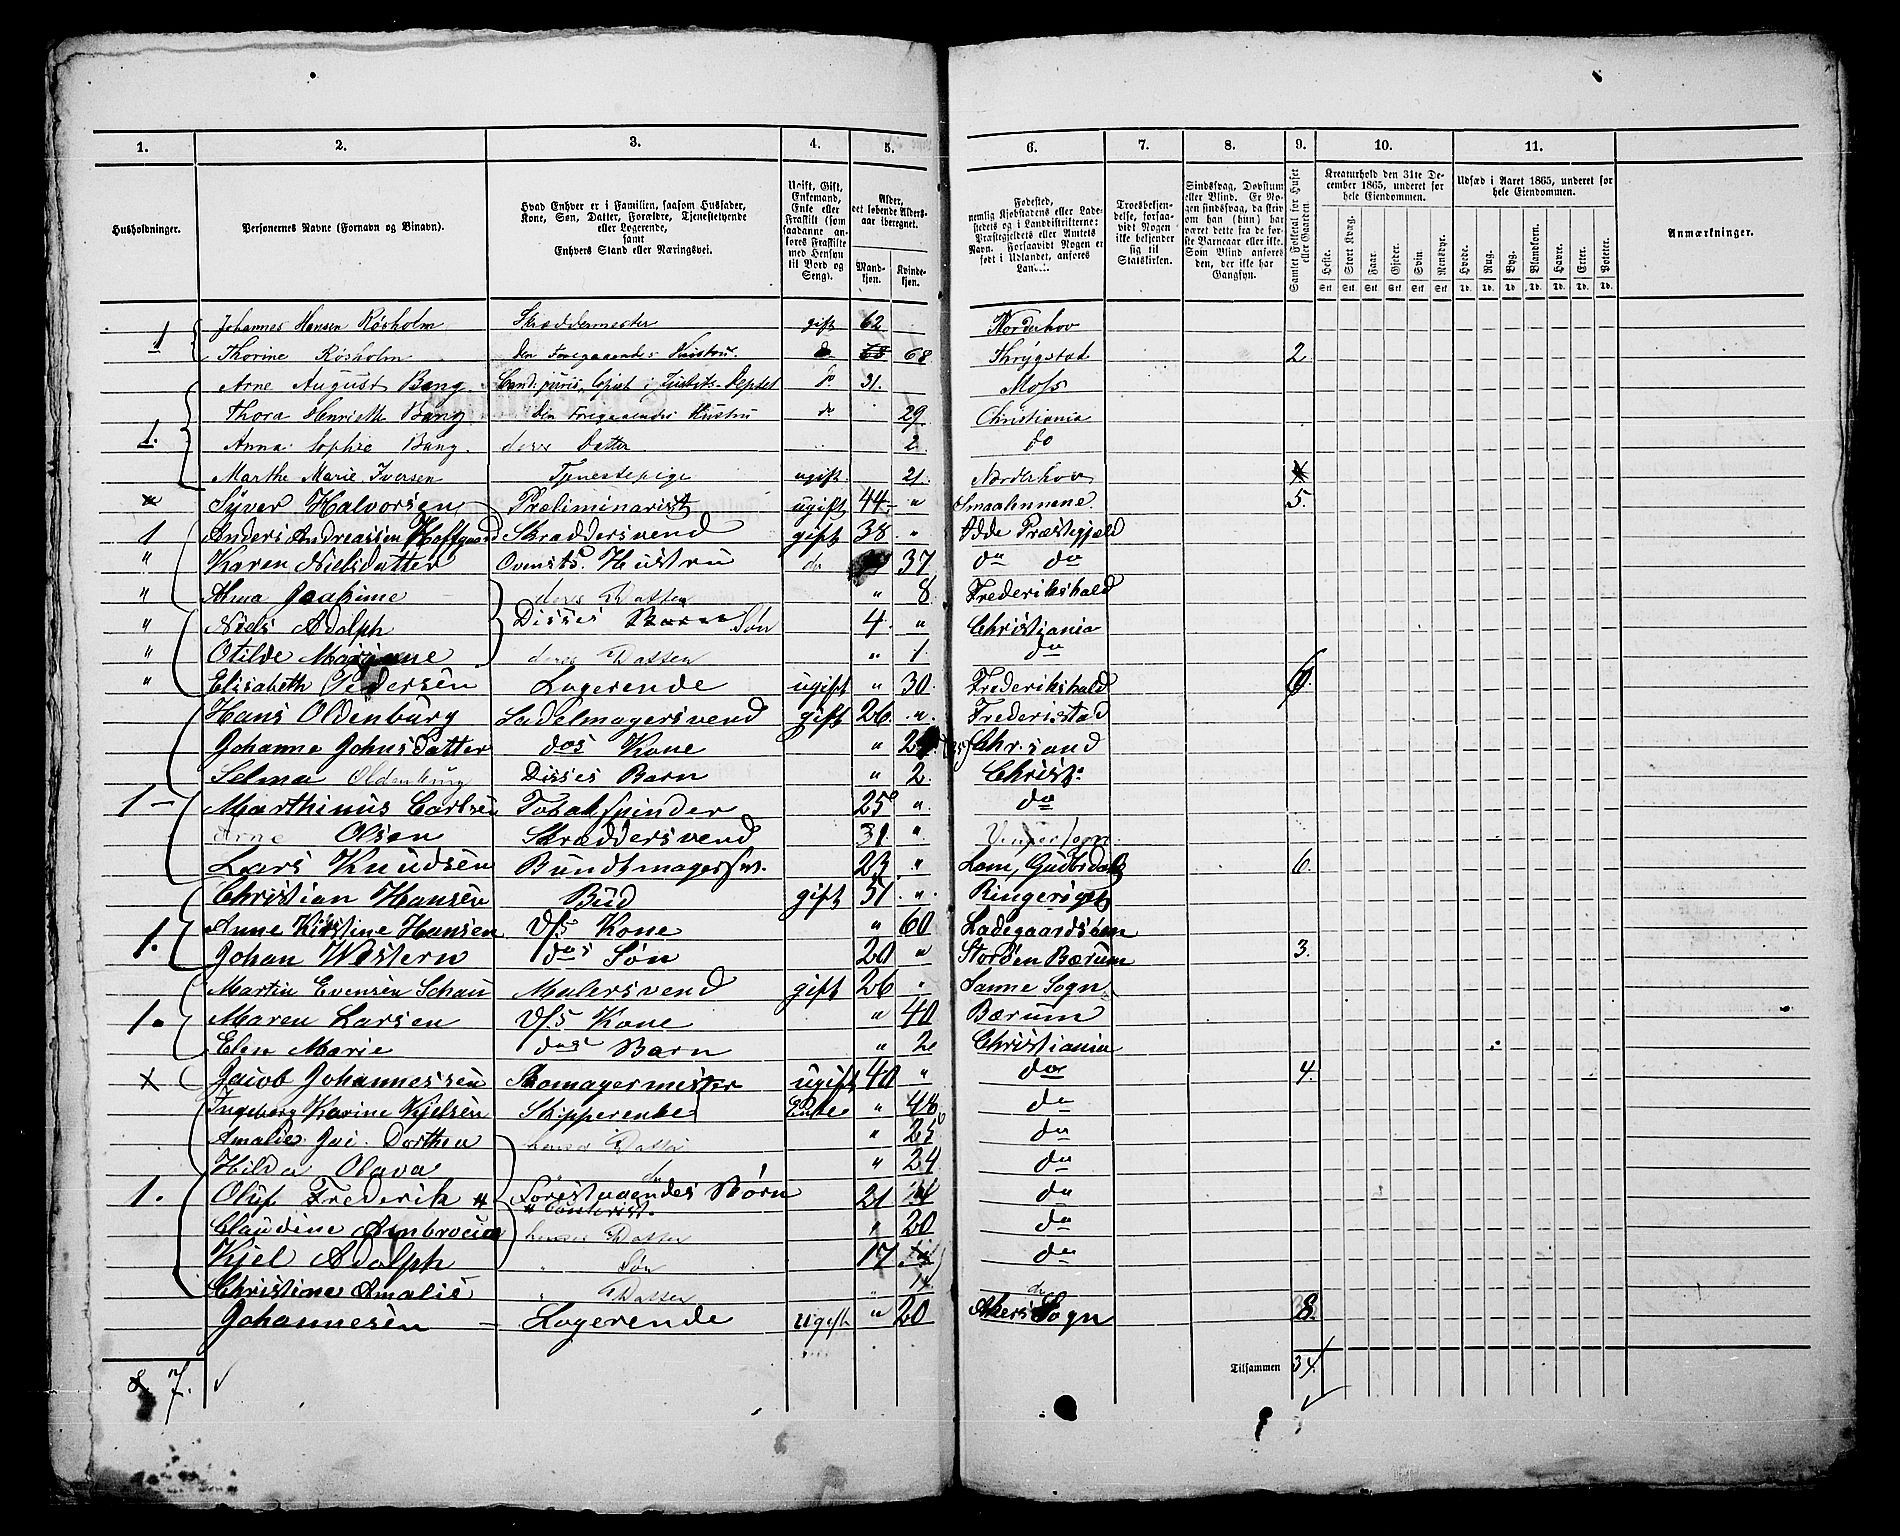 1. 2. 3. 4. 5. 6. 7. 8. 9. 10. 11.
Husholdninger.
Personernes Navne (Fornavn og Binavn).
Hvad Enhver er i Familien, saasom Husfader, Kone, Søn, Datter, Forældre, Tjenestetyende eller Logerende, samt Enhvers Stand eller Næringsvei.
Ugift, Gift, Enkemand, Enke eller Fraskilt (som saadanne anføres Fraskilte med Hensyn til Bord og Seng).
Alder, det løbende Aldersaar iberegnet.
Mandkjøn. Kvindekjøn.
Fødested, nemlig Kjøbstadens eller Ladestedets og i Landdistrikterne: Præstegjeldets eller Amtets Navn. Forsaavidt Nogen er født i Udlandet, anføres
Troesbekjendelse, forsaavidt Nogen ikke bekjender sig til Statskirken.
Sindssvag, Døvstum eller Blind. Er Nogen sindssvag, da skrives om han (hun) har været dette fra de første Barneaar eller ikke. Som Blind anføres den, der ikke har Gangsyn.
Samlet Folketal for Huset eller Gaarden
Kreaturhold den 31te December 1865, underet for hele Eiendommen.
Heste. Stort Kvæg. Faar. Gjeder. Svin. Rensdyr.
Stk Stk Stk Stk Stk Stk
Udsæd i Aaret 1865, underet for hele Eiendommen.
Hvede. Rug. Byg. Blandkorn. Havre. Erter. Poteter.
Td. Td. Td. Td. Td. Td. Td.
Anmærkninger.
Johannes Hansen Røsholm Skræddermester gift 62 Norderhov
1 Thorine Røsholm den Foregaaendes Hustru. do 68 68 Thrygstad 2
Arne August Bang Cand: juris, Copist i Justits-Deptet do 31. Moss
Thora Henriette Bang den Foregaaendes Hustru do 29 Christiania
1. Anna Sophie Bang. deres Datter 2 do
Marthe Marie Iversen Tjenestepige ugift. 21. Norderhov
x Syver Halvorsen Præliminarist ugift 44 " Smaalenene 5
1 Anders Andreassen Hoffgaard Skræddersvend gift 38 " Idde Præstegjeld
" Karen Nielsdatter Ovensts. Hustru do 37 do do
" Anna Joahime deres Datter " 8 Frederikshald
" Niels Adolph Disses Barn Søn 4. " Christiania
" Otilde Marianne deres Datter " 1. do
" Elisabeth Pedersen Logerende ugift " 30. Frederikshald 6.
Hans Oldenburg Sadelmagersvend gift 26 " Frederisstad
Johanne Johnsdatter dos Kone " Chr.sand
Selma Oldenburg Disses Barn " 2. Christ.
1 - Marthinus Carlsen Tobakspinder 25 " do
Arne Olsen Skræddersvend 31 "
Lars Knudsen Bundtmagersv. 23 " Lom, Gudbrdal 6.
Christian Hansen Bud gift 51 " Ringeriget
1. Anne Kirstine Hansen D/s Kone " 60 Ladegaardsøen
Johan Western dos Søn 20 " Storøen Bærum 3.
Martin Evensen Schau Malersvend gift 26 " Sanne Sogn
1. Maren Larsen D/s Kone " 40 Bærum
Elen Marie dos Barn " 2 Christiania
x Jacob Johannessen Skomagermester ugift 40 " do 4.
Ingeborg Karine Kjelsen Skipperenke Enke " 48 do
Amalie Dorthea hendes Datter " 25 do
Hilda Olava " do " 24 do
1. Oluf Frederik Forestaaendes Børn 21 do
" Contorist.
Claudine Ambrocia hendes Datter " 20 do
Kjel Adolph " Søn 17 do
Christine Amalie " Datter " 14 do
Johannesen Logerende ugift " 20 Akers Sogn 8.
8 7. Tilsammen 34.